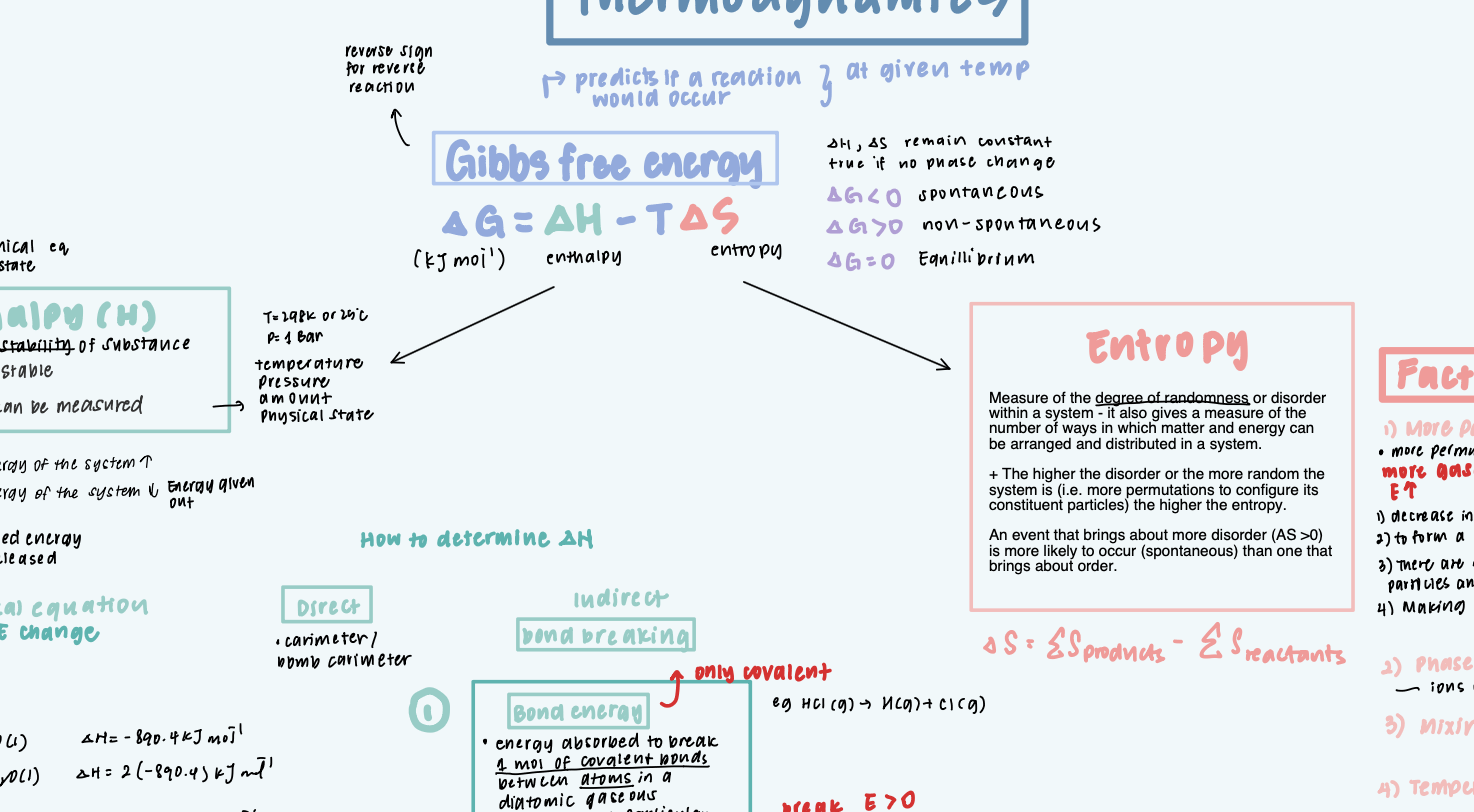 Thermodynamics
reverse sign
for reverse
reaction
↱ predicts if a reaction
would occur
} at given temp
Gibbs free energy
ΔG = ΔH - TΔS
(kJ mol⁻¹)
enthalpy
entropy
ΔH, ΔS remain constant
true if no phase change
ΔG<0 spontaneous
ΔG>0 non-spontaneous
ΔG=0 Equillibrium
nical eq
state
alpy (H)
stability of substance
stable
can be measured →
T=298K or 25°C
P=1 Bar
temperature
Pressure
amount
Physical state
ergy of the system ↑
ergy of the system ↓ Energy given
out
ed energy
eleased
al equation
E change
How to determine ΔH
Direct
• carimeter/
bomb carimeter
Indirect
bond breaking
only covalent
1
Bond energy
• energy absorbed to break
1 mol of covalent bonds
between atoms in a
diatomic gaseous
eg HCl(g) → H(g) + Cl(g)
break E>0
O(l) ΔH = -890.4 kJ mol⁻¹
O(l) ΔH = 2(-890.4) kJ mol⁻¹
Entropy
Measure of the degree of randomness or disorder
within a system - it also gives a measure of the
number of ways in which matter and energy can
be arranged and distributed in a system.
+ The higher the disorder or the more random the
system is (i.e. more permutations to configure its
constituent particles) the higher the entropy.
An event that brings about more disorder (AS >0)
is more likely to occur (spontaneous) than one that
brings about order.
ΔS = ΣS products - ΣS reactants
Fact
1) More pa
• more permu
more gas
E↑
1) decrease in
2) to form a
3) There are
particles an
4) Making
2) Phase
ions
3) Mixin
4) Tempe